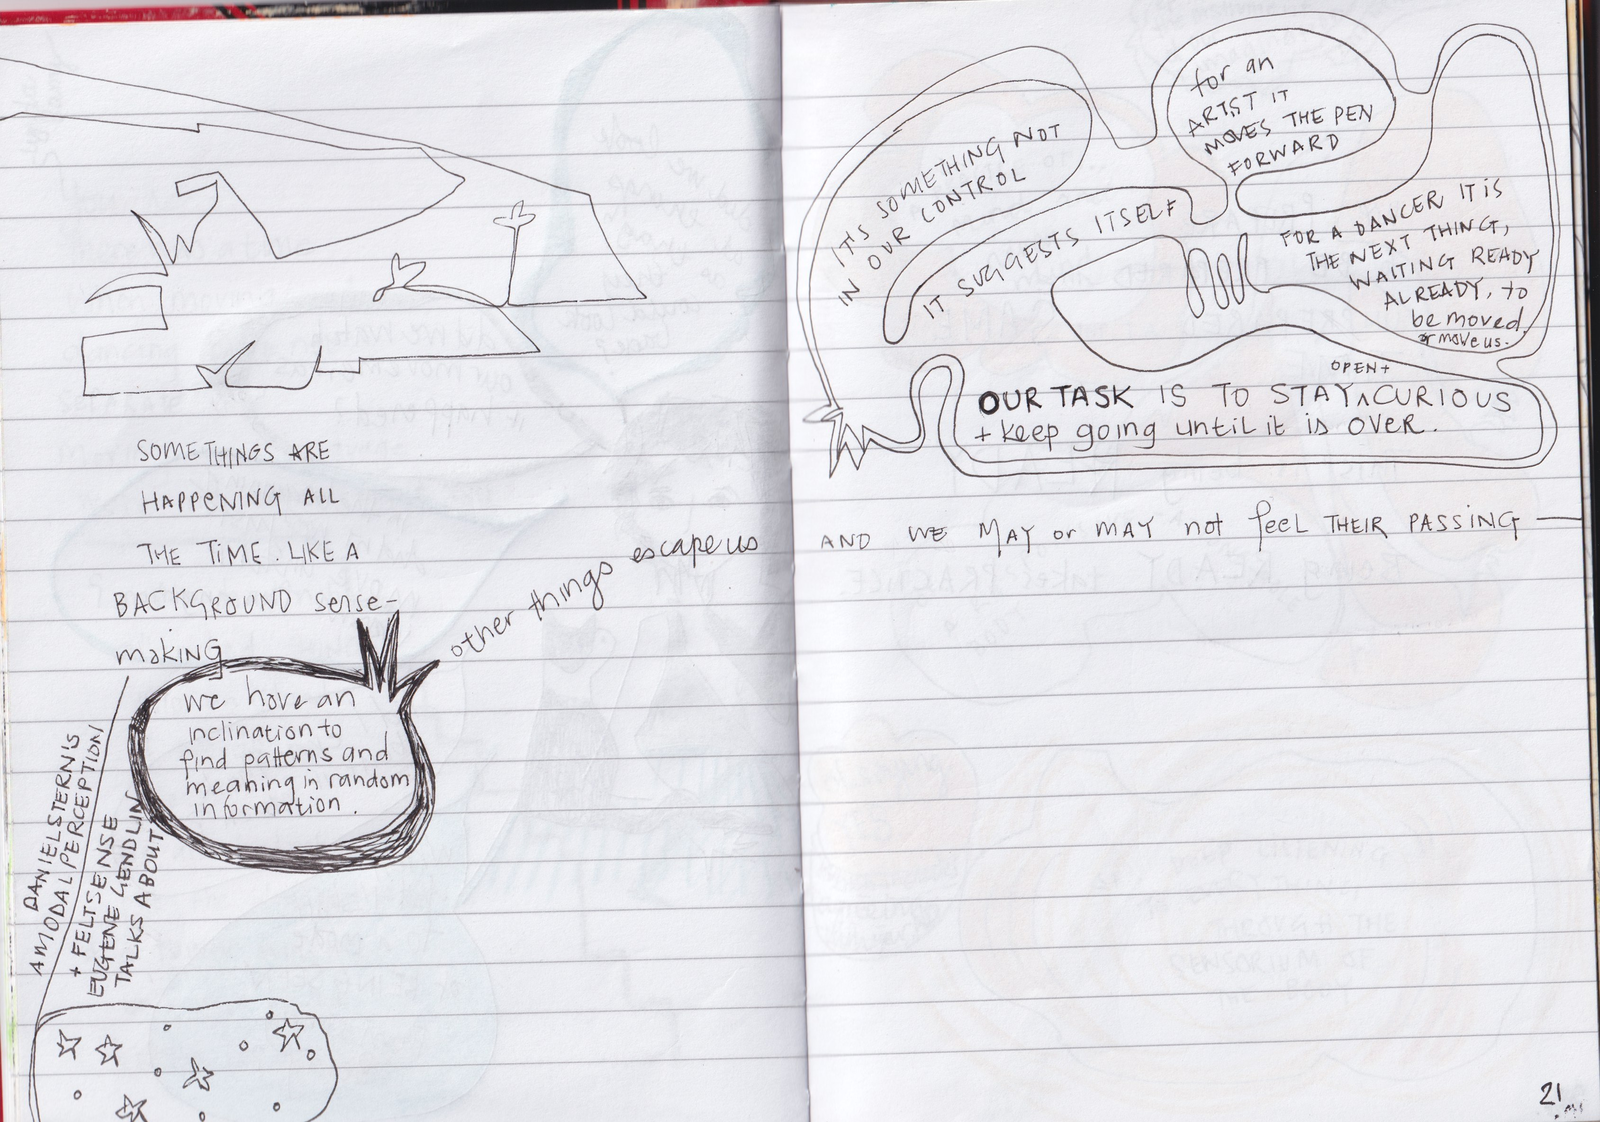 SOMETHINGS ARE
HAPPENING ALL
THE TIME. LIKE A
BACKGROUND sense-
making
we have an
inclination to
find patterns and
meaning in random
information.
other things escape us
DANIEL STERN'S
AMODAL PERCEPTION
+ FELT SENSE
EUGENE GENDLIN
TALKS ABOUT
IT'S SOMETHING NOT
IN OUR CONTROL
IT SUGGESTS ITSELF
for an
ARTIST IT
MOVES THE PEN
FORWARD
FOR A DANCER IT IS
THE NEXT THING,
WAITING READY
ALREADY, to
be moved
or move us.
OPEN+
OUR TASK IS TO STAY ^ CURIOUS
+ keep going until it is OVER.
AND WE MAY or MAY not feel THEIR PASSING —
21